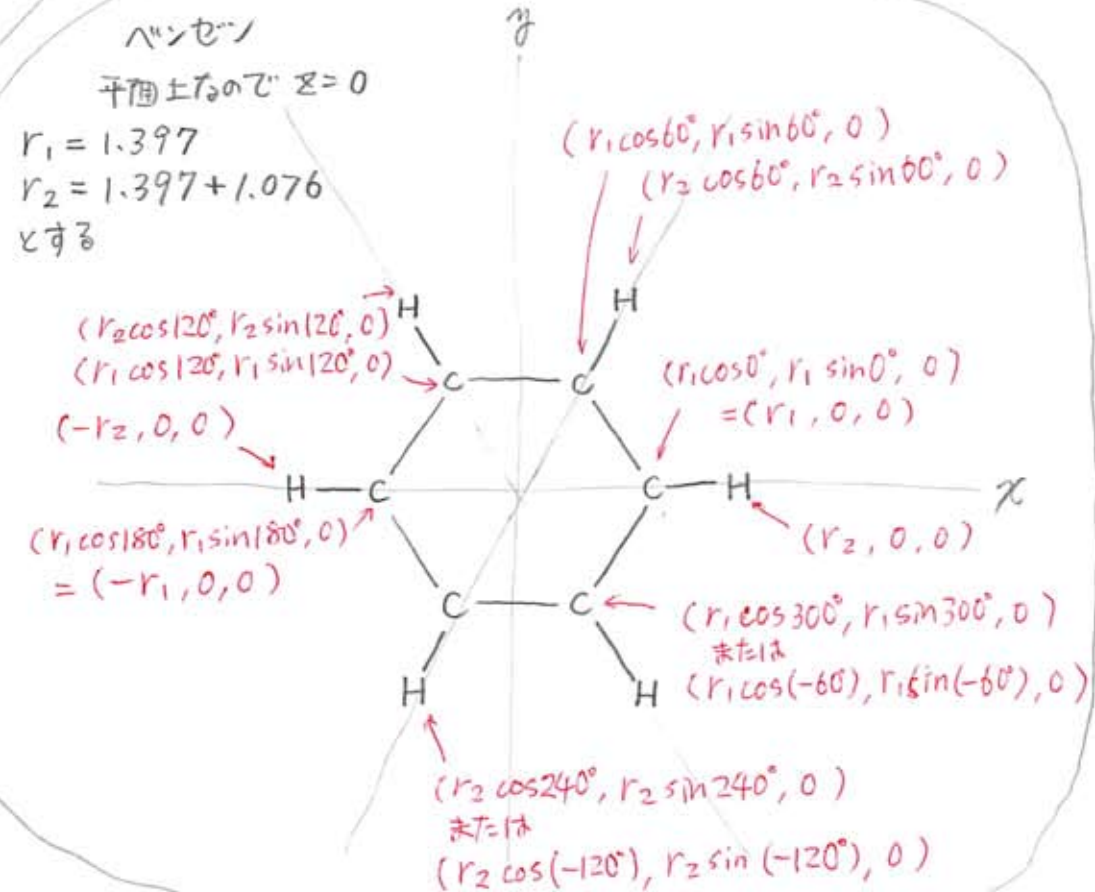 ベンゼン
平面上なので z=0
r₁ = 1.397
r₂ = 1.397+1.076
とする
y
(r₁cos60°, r₁sin60°, 0)
(r₂cos60°, r₂sin60°, 0)
H
H
(r₂cos120°, r₂sin120°, 0)
(r₁cos120°, r₁sin120°, 0)
C
C
(r₁cos0°, r₁sin0°, 0)
=(r₁, 0, 0)
(-r₂, 0, 0)
H
C
C
H
x
(r₁cos180°, r₁sin180°, 0)
= (-r₁, 0, 0)
(r₂, 0, 0)
C
C
(r₁cos300°, r₁sin300°, 0)
または
(r₁cos(-60°), r₁sin(-60°), 0)
H
H
(r₂cos240°, r₂sin240°, 0)
または
(r₂cos(-120°), r₂sin(-120°), 0)